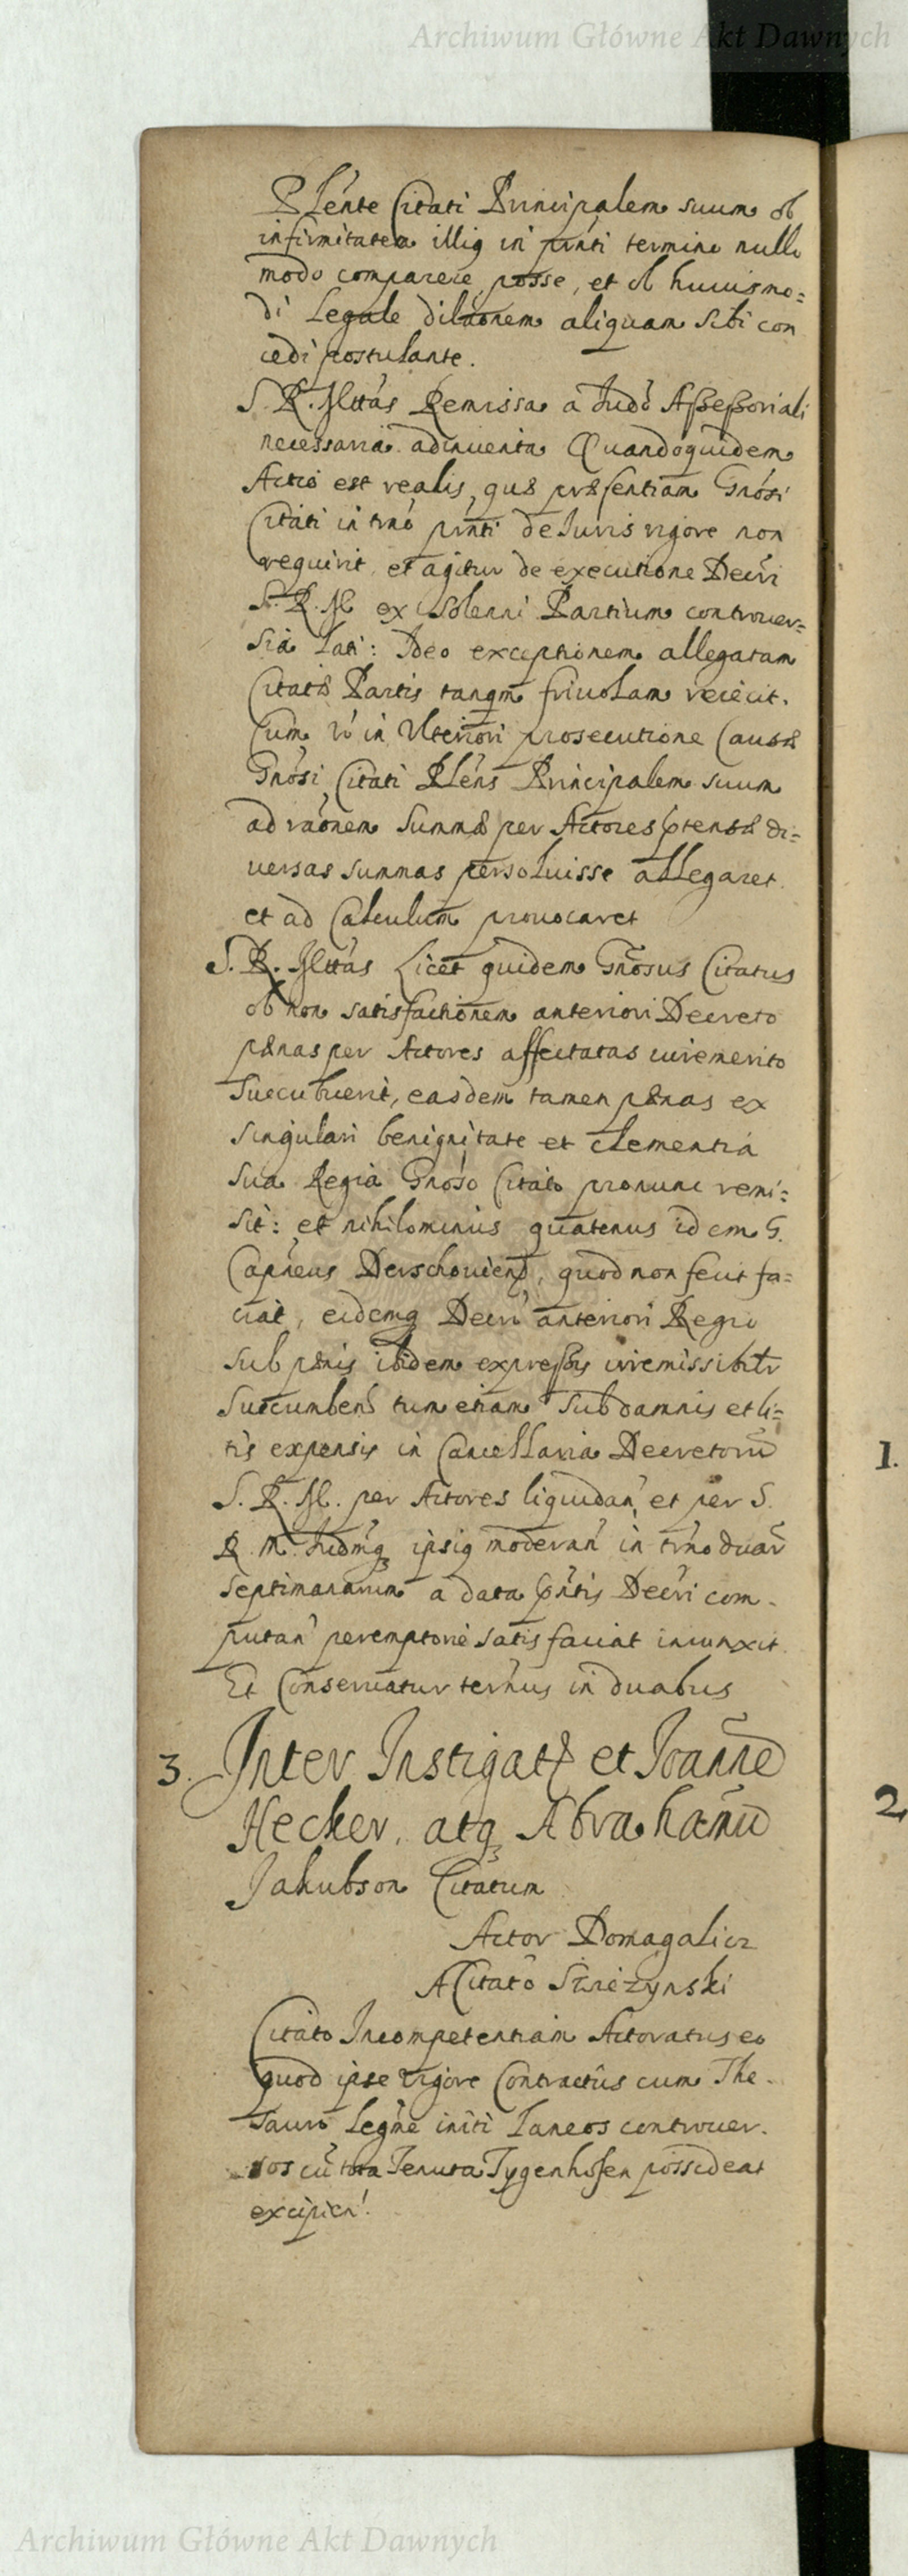 Archiwum Główne Akt Dawnych
Plente Citati Principalem suum ob
infirmitatem illig in pnti termino nullo
modo comparere posse, et ob huiusmo=
di Legale dilaonem aliquam sibi con
cedi postulante.
S. R. Mttas Remissa a Judo Assessoriali
necessaria adinuenta Quandoquidem
Actio est realis, quæ præsentiam Gnosi
Citati in tno pnti de Iuris rigore non
requirit, et agitur de executione Decri
S. R. M ex solenni Partium controuer=
sia lati: Ideo exceptionem allegatam
Citatæ Partis tanqm friuolam reiecit.
Cum v in Ulteriori prosecutione Causæ
Gnosi Citati Plens Principalem suum
ad raonem summæ per Actores ptensæ di=
uersas summas persoluisse allegaret
et ad Calculum prouocaret
S. R. Mttas Licet quidem Gnosus Citatus
ob non satisfactionem anteriori Decreto
pænas per Actores affectatas iure merito
succubuerit, easdem tamen pænas ex
singulari benignitate et clementia
sua Regia Gnoso Citato pronunc remi=
sit: et nihilominus quatenus idem G.
Capneus Derschouien, quod non fecit fa=
ciat, eidemq Decri anteriori Regio
sub pænis ibidem expressis irremissibiltr
succumben tum etiam sub damnis et li=
tis expensis in Cancellaria Decretoru
S. R. M. per Actores liquidan et per S.
R M Judmq ipsig moderan in tno duar
septimanarum a data pntis Decri com-
putan peremptorie satisfaciat iniunxit
Et Conseruatur ternus in duabus
3. Inter Instigat et Joanne
Hecker, atq Abrahamu
Jakubson Citatum
Actor Domagalicz
A Citato Swiezynski
Citato Incompetentiam Actoratus eo
quod ipse vigore Contractus cum The-
sauro Legne initi Laneos controuer-
sos cu tota Tenuta Tygenhofen possideat
excipien.
1.
2
Archiwum Główne Akt Dawnych